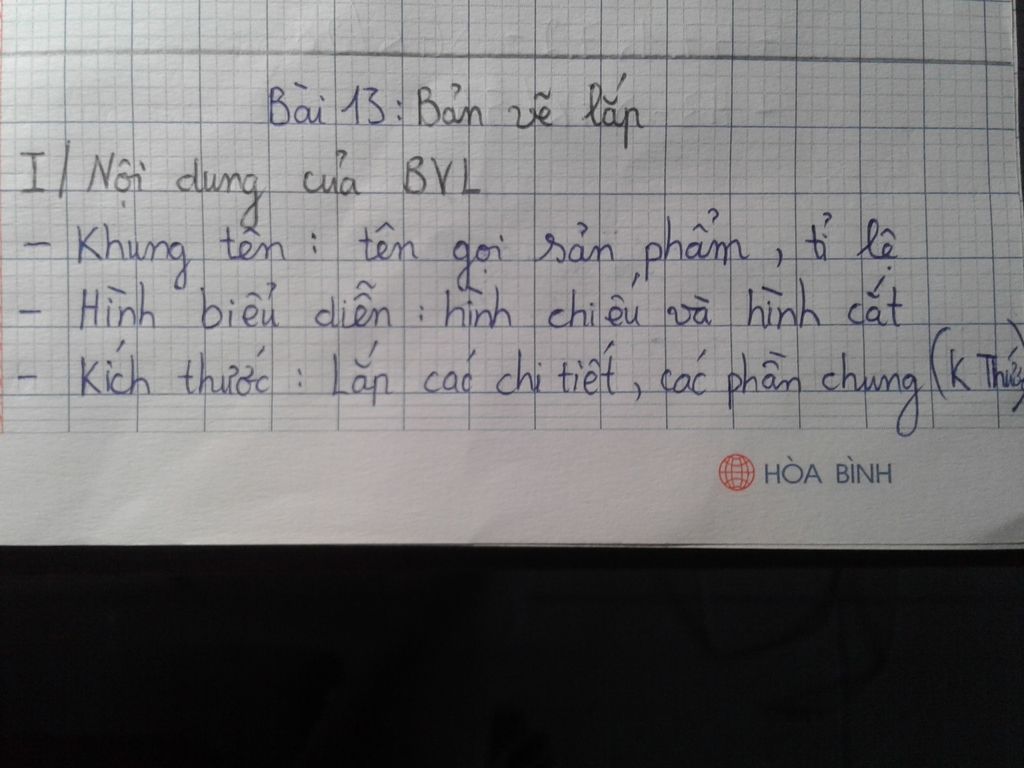 Bài 13: Bản vẽ lắp
I/ Nội dung của BVL
- Khung tên : tên gọi sản phẩm, tỉ lệ
- Hình biểu diễn : hình chiếu và hình cắt
- Kích thước : Lắp các chi tiết, các phần chung (K Thước)
HÒA BÌNH